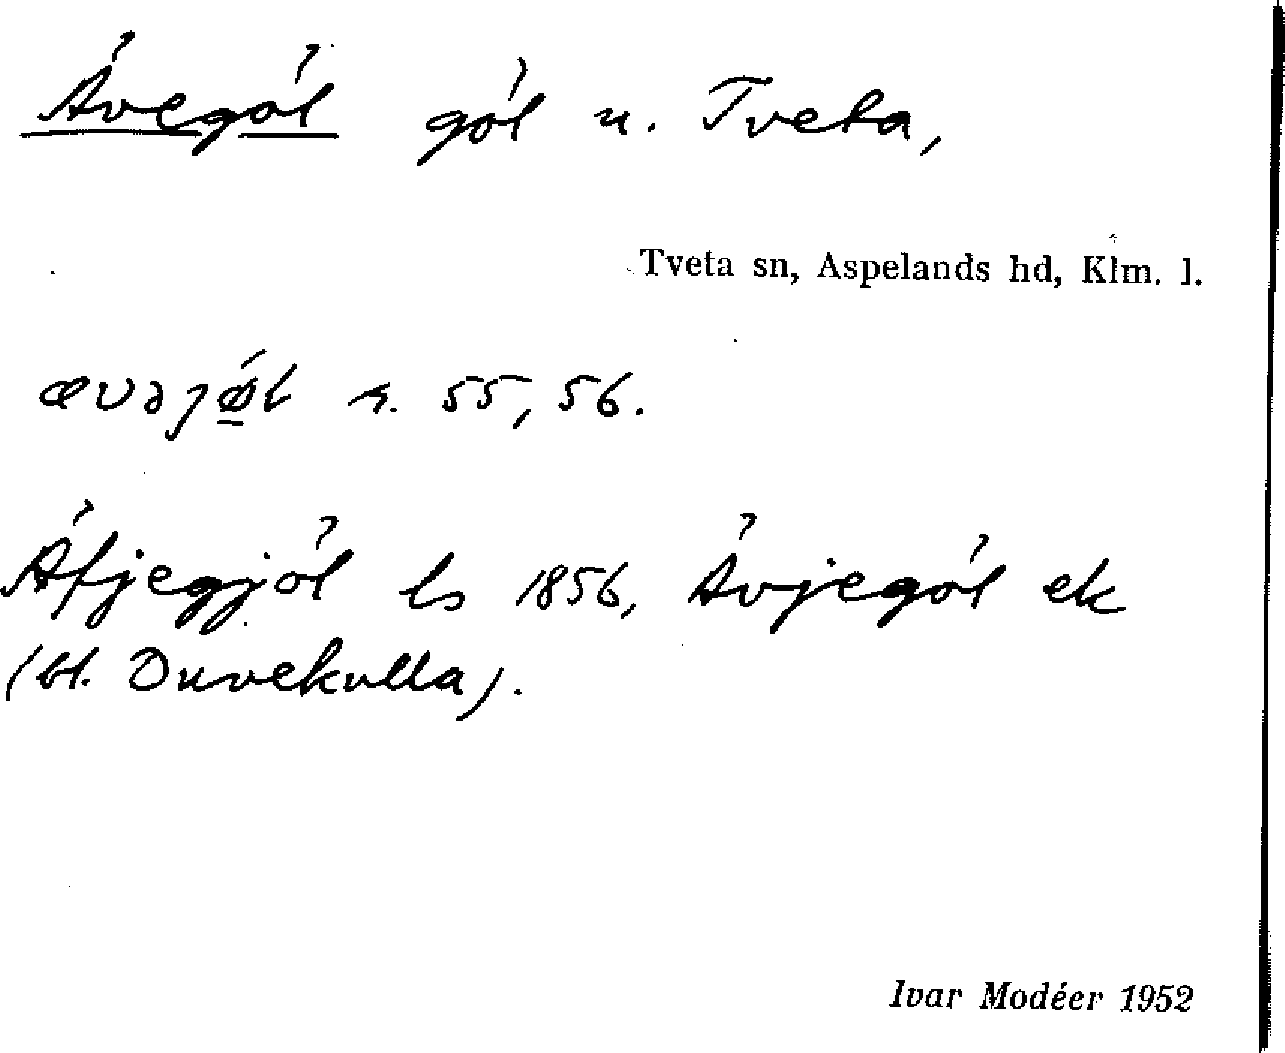 Ävegöl göl n. Tveta,
Tveta sn, Aspelands hd, Klm. l.
ævəjǿ̲l s. 55, 56.
Äfjegjöl ls 1856, Ävjegöl ek
(bl. Duvekulla).
Ivar Modéer 1952